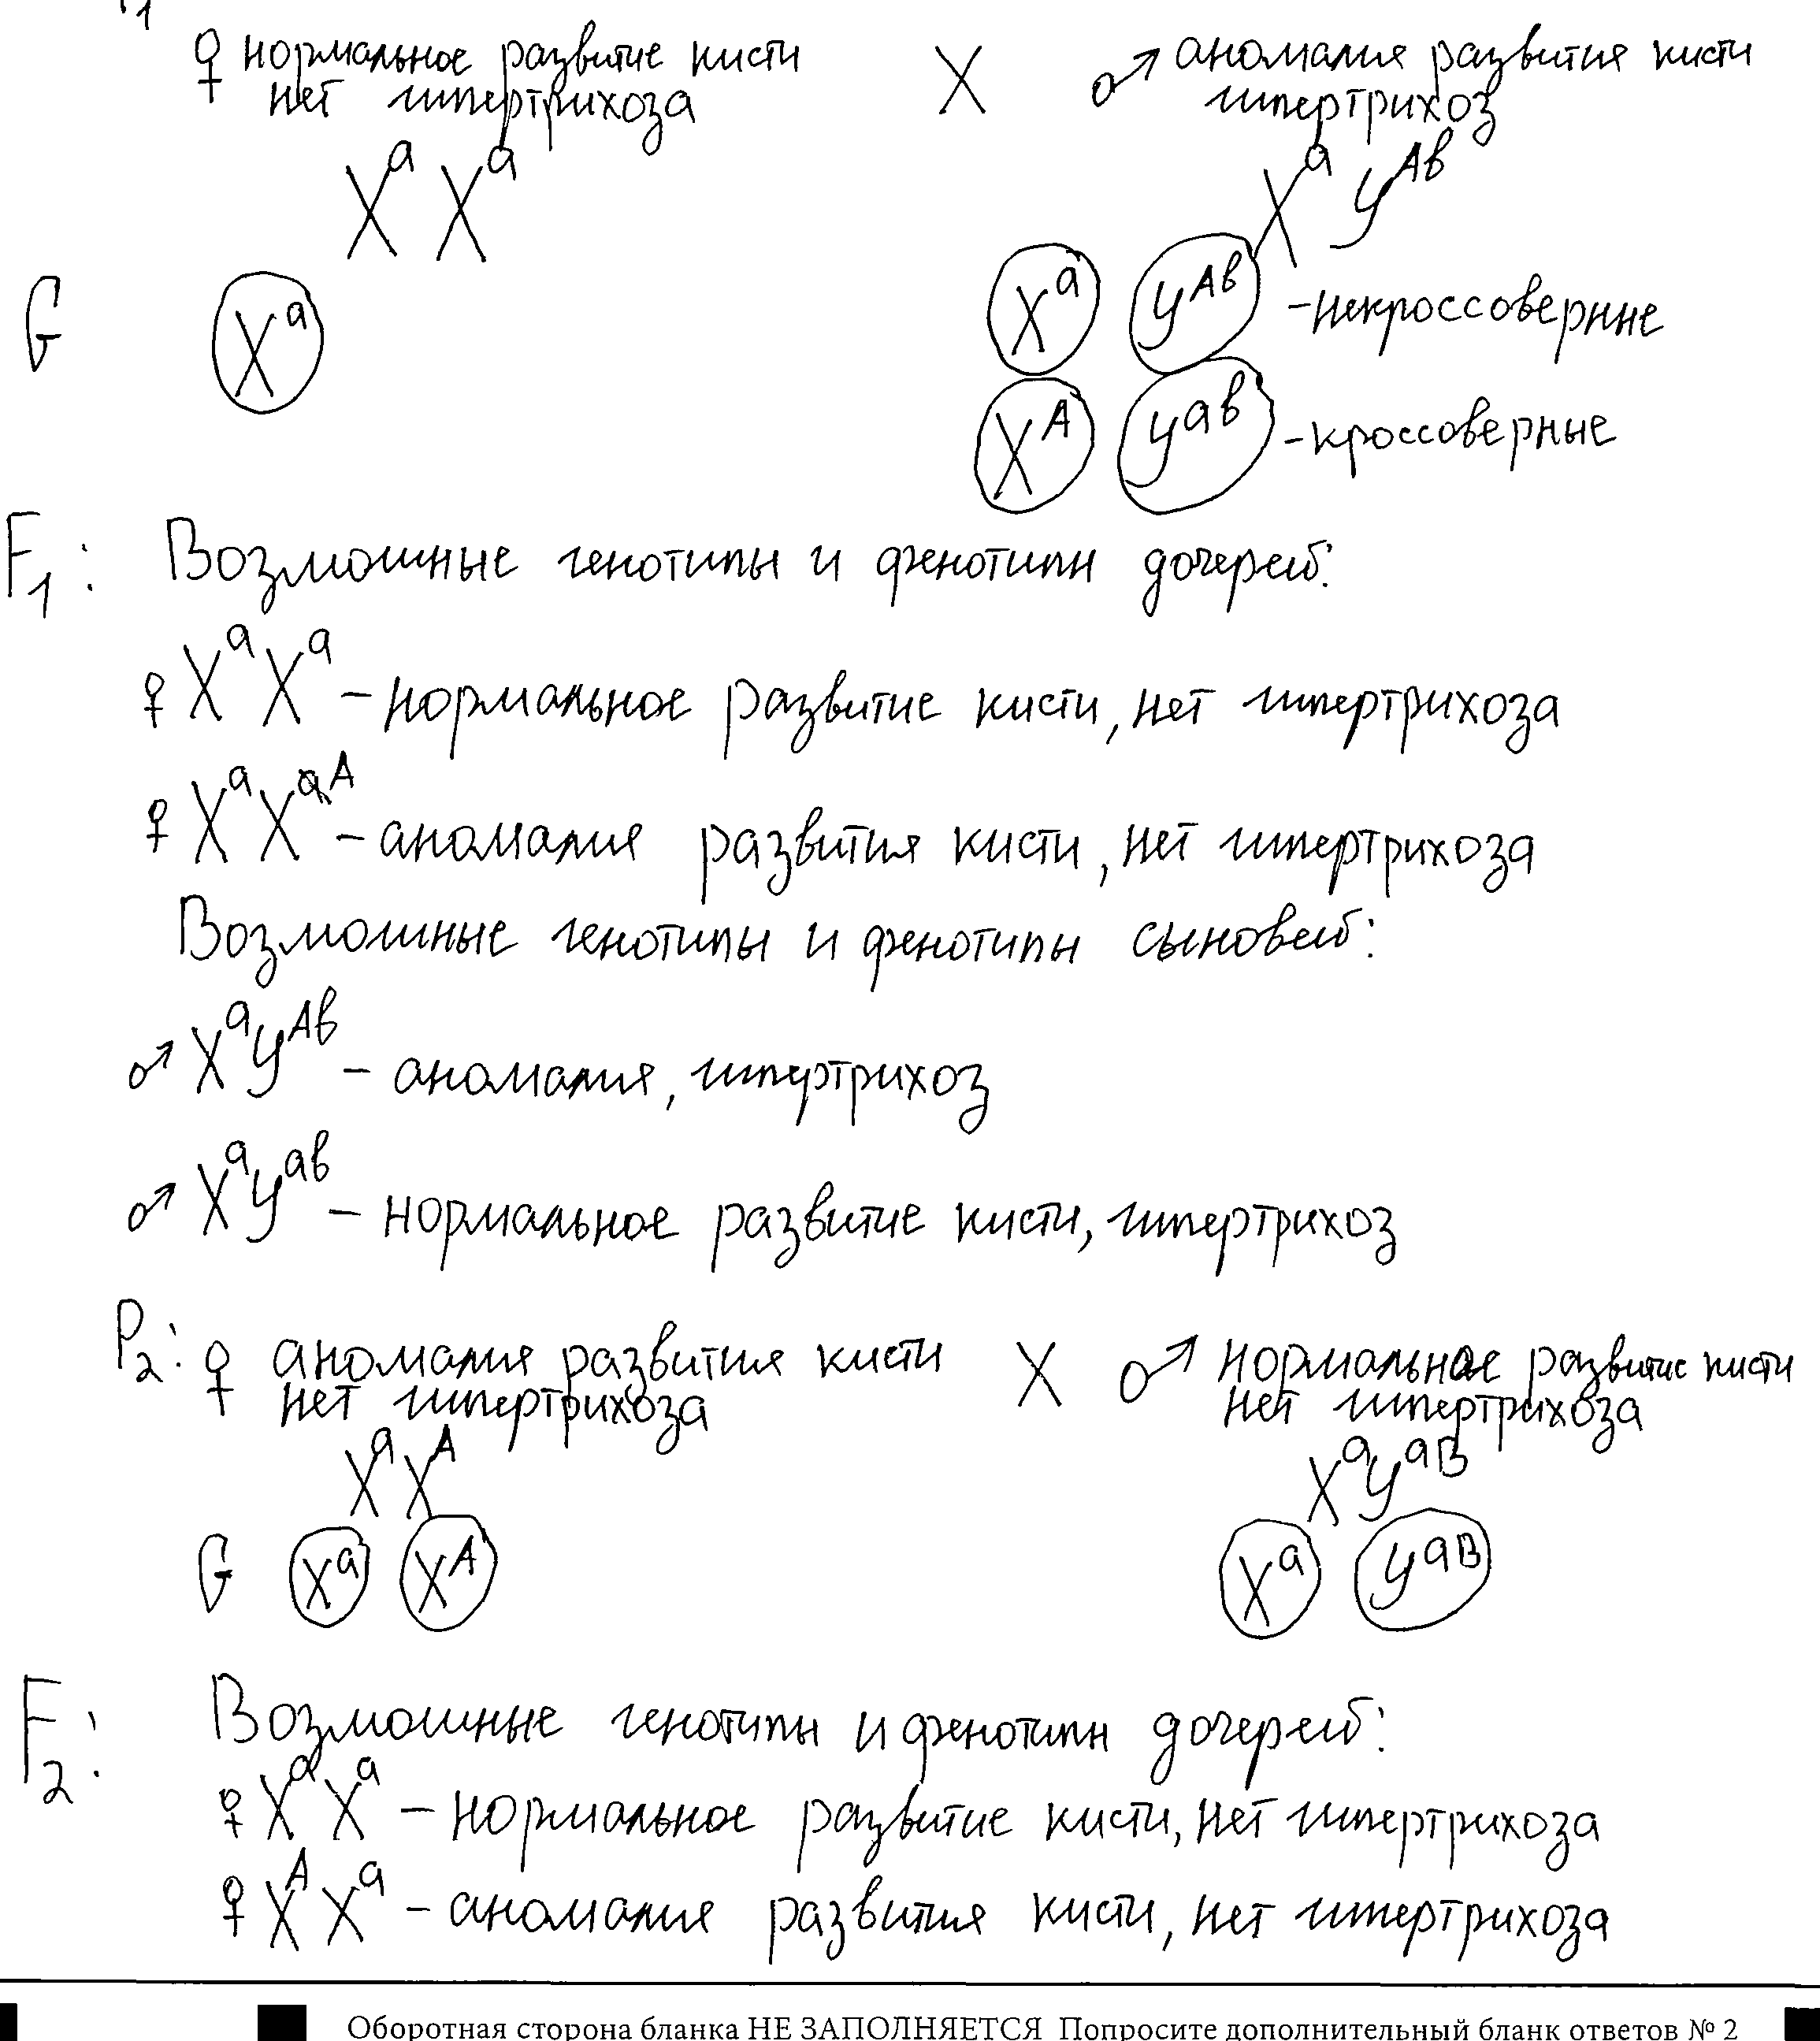 P1
♀ нормальное развитие кисти X ♂ аномалия развития кисти
нет гипертрихоза гипертрихоз
XᵃXᵃ XᵃYᴬᵇ
G Xᵃ Xᵃ Yᴬᵇ -некроссоверные
Xᴬ Yᵃᵇ -кроссоверные
F₁: Возможные генотипы и фенотипы дочерей:
♀ XᵃXᵃ – нормальное развитие кисти, нет гипертрихоза
♀ XᵃXᴬ – аномалия развития кисти, нет гипертрихоза
Возможные генотипы и фенотипы сыновей:
♂ XᵃYᴬᵇ – аномалия, гипертрихоз
♂ XᵃYᵃᵇ – нормальное развитие кисти, гипертрихоз
P₂: ♀ аномалия развития кисти X ♂ нормальное развитие кисти
нет гипертрихоза нет гипертрихоза
XᵃXᴬ XᵃYᵃᴮ
G Xᵃ Xᴬ Xᵃ Yᵃᴮ
F₂: Возможные генотипы и фенотипы дочерей:
♀ XᵃXᵃ – нормальное развитие кисти, нет гипертрихоза
♀ XᴬXᵃ – аномалия развития кисти, нет гипертрихоза
Оборотная сторона бланка НЕ ЗАПОЛНЯЕТСЯ Попросите дополнительный бланк ответов № 2